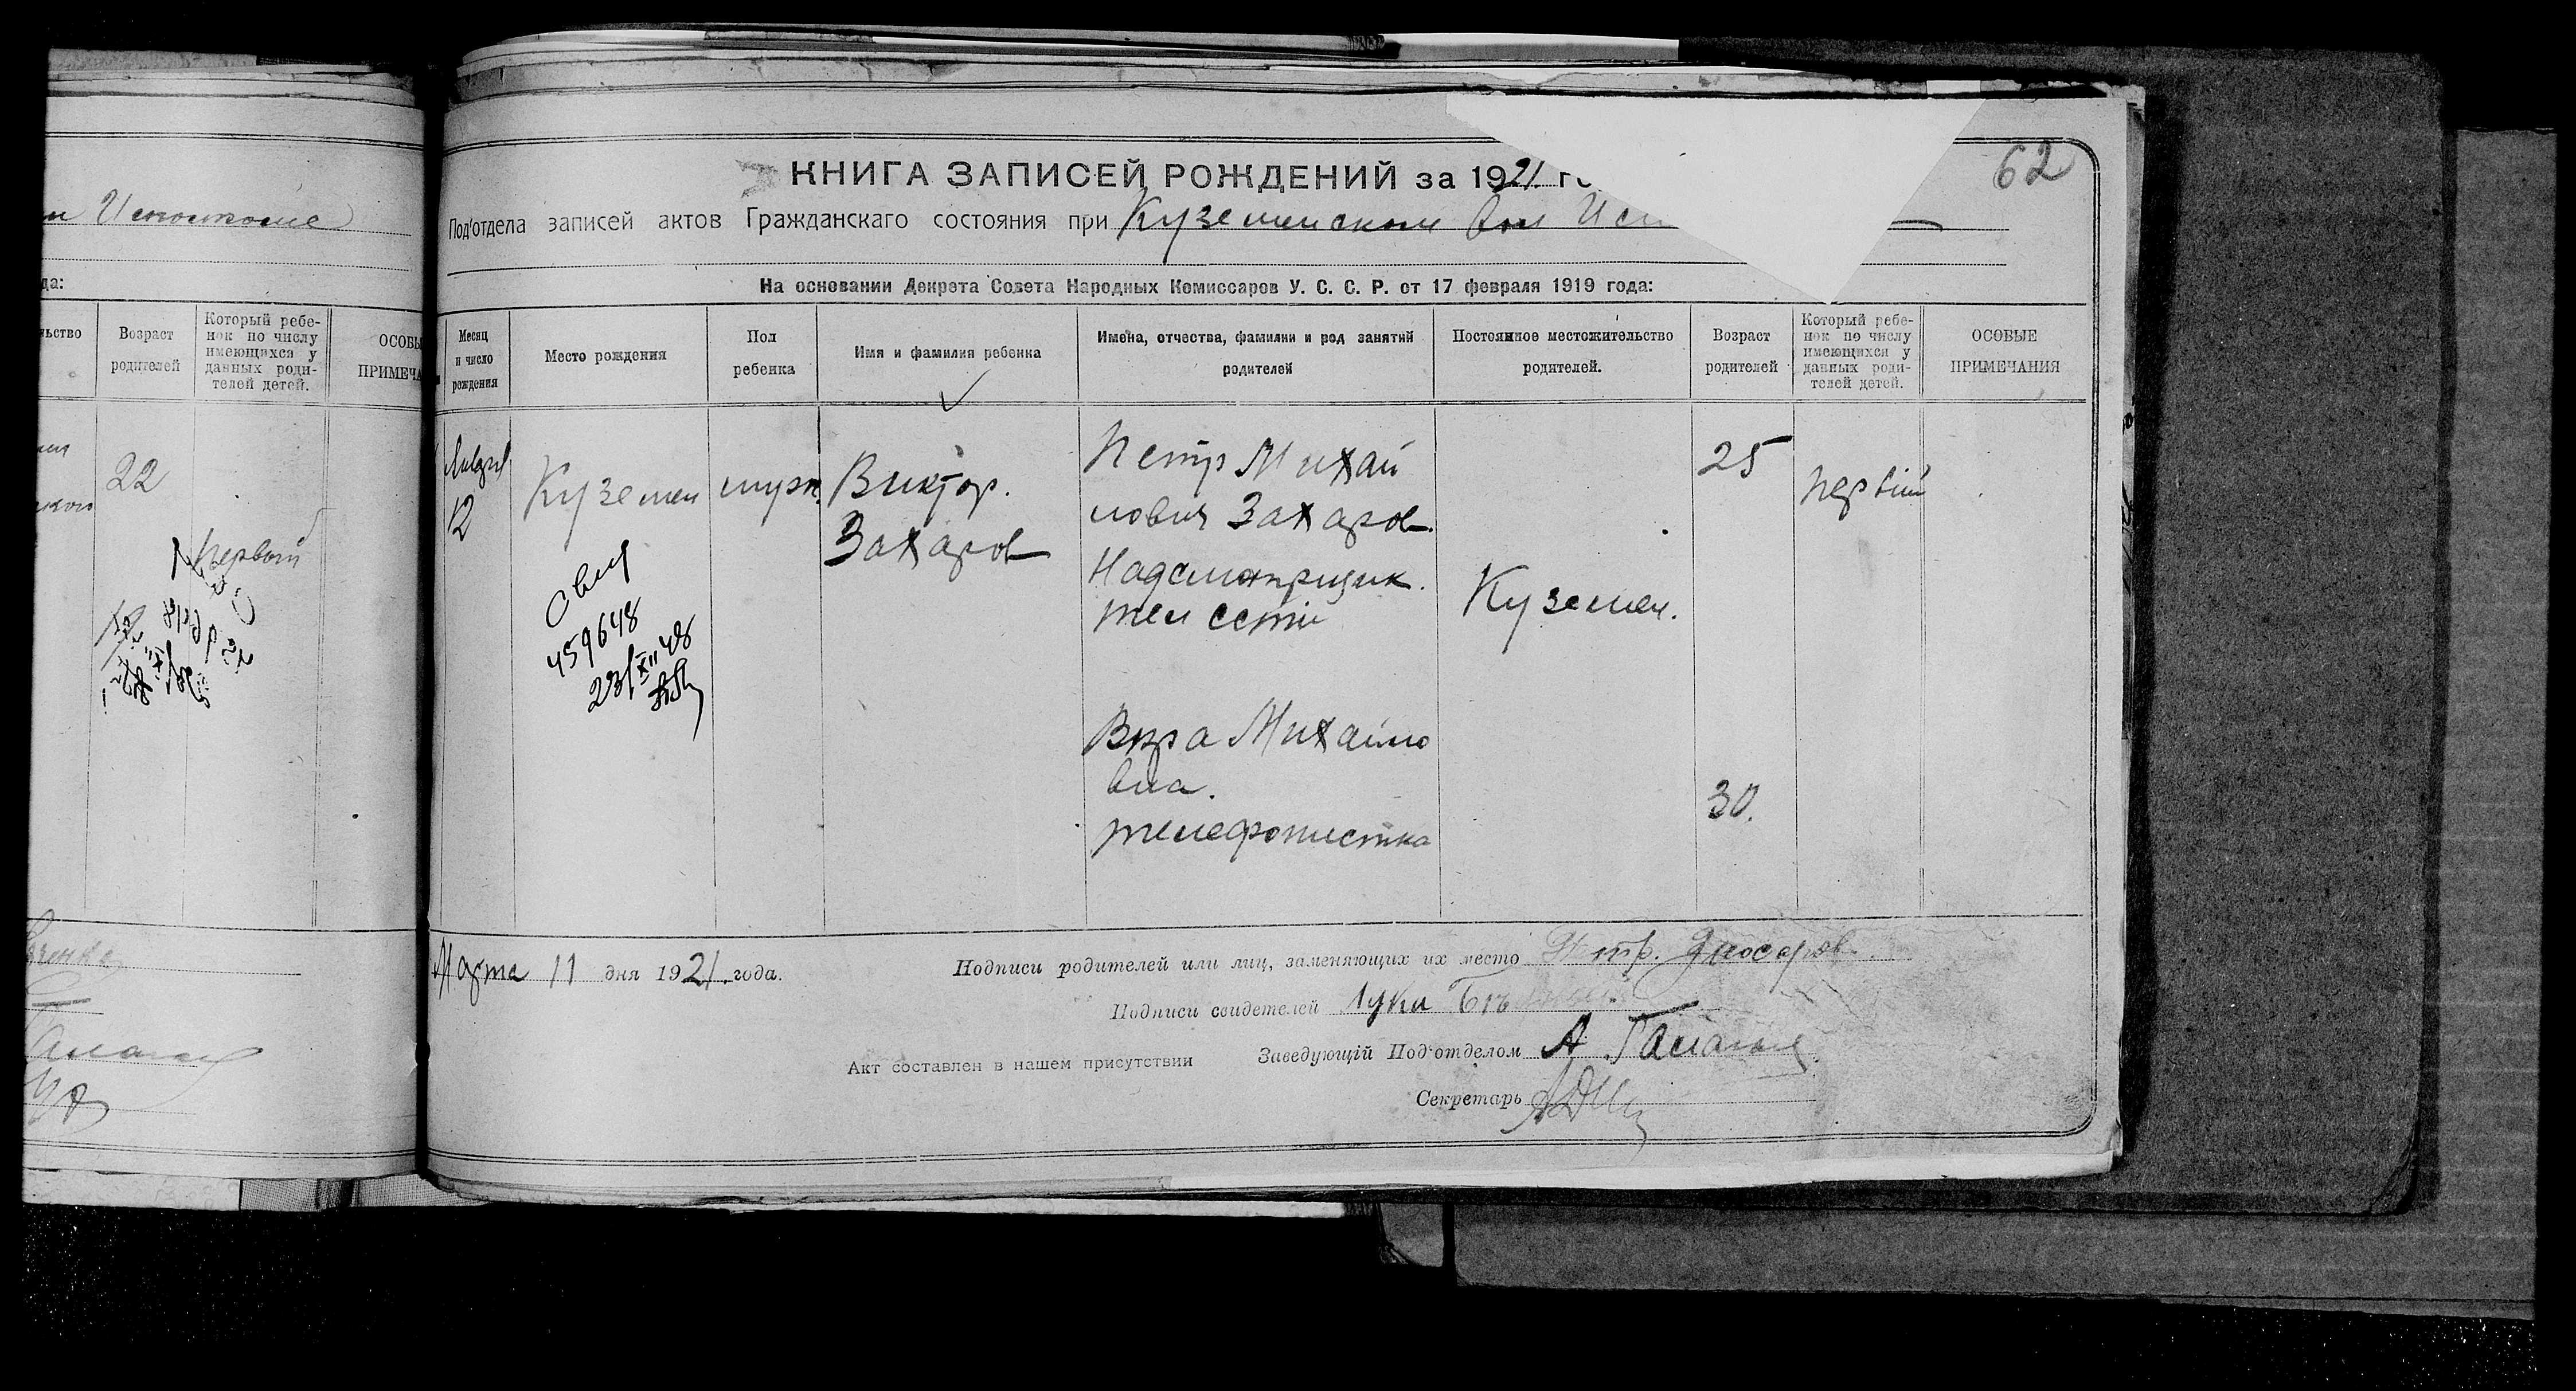 и Исполкоме
да:
льство
Возраст
родителей
Который ребе-
нок по числу
имеющихся у
данных роди-
телей детей.
ОСОБЫ
ПРИМЕЧА
22
первый
62
КНИГА ЗАПИСЕЙ РОЖДЕНИЙ за 1921 го
Под'отдела записей актов Гражданскаго состояния при Куземенском вол Исп
На основании Декрета Совета Народных Комиссаров У. С. С. Р. от 17 февраля 1919 года:
Месяц
и число
рождения
Место рождения
Пол
ребенка
Имя и фамилия ребенка
Имена, отчества, фамилии и род занятий
родителей
Постоянное местожительство
родителей.
Возраст
родителей
Который ребе-
нок по числу
имеющихся у
данных роди-
телей детей.
ОСОБЫЕ
ПРИМЕЧАНИЯ
12
Куземен
муж.
Виктор.
Захаров
Петр Михай
лович Захаров.
Надсмотрщик.
тел сети
Вера Михайло
вна.
телефонистка
Куземен.
25
30.
первый
459648
23/XII 48
Марта 11 дня 1921. года.
Подписи родителей или лиц, заменяющих их место
Подписи свидетелей Лука
Акт составлен в нашем присутствии
Заведующій Под'отделом А
Секретарь